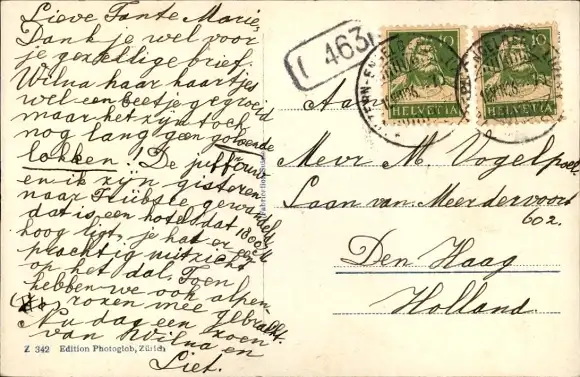 Lieve Tante Marie,
Dank je wel voor
je gezellige brief.
Wilna haar haartjes
wel een beetje gegroeid
maar het zijn toch
nog lang geen golvende
lokken! De juffrouw
en ik zijn gisteren
naar Trübsee gewandeld
dat is een hotel dat 1800 M
hoog ligt, je hat er een
prachtig uitzicht
op het dal. Toen
hebben we ook alpen-
rozen mee gebracht.
Nu dag een zoen
van Wilna en
Liet.
Z 342 Edition Photoglob, Zürich
463
10
HELVETIA
10
HELVETIA
Aan
Mevr M. Vogelpoel
Laan van Meerdervoort
602.
Den Haag
Holland.